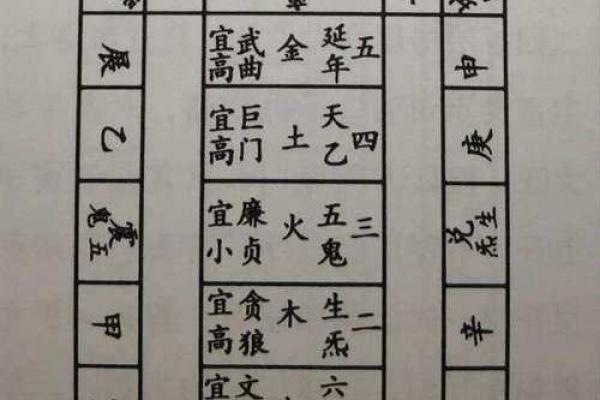 申
五
延年
金
武曲
宜高
辰
庚
四
天乙
土
巨门
宜高
乙
兑
生炁
三
五鬼
火
廉贞
宜小
震
五鬼
辛
二
生炁
木
贪狼
宜高
甲
六
文
宜